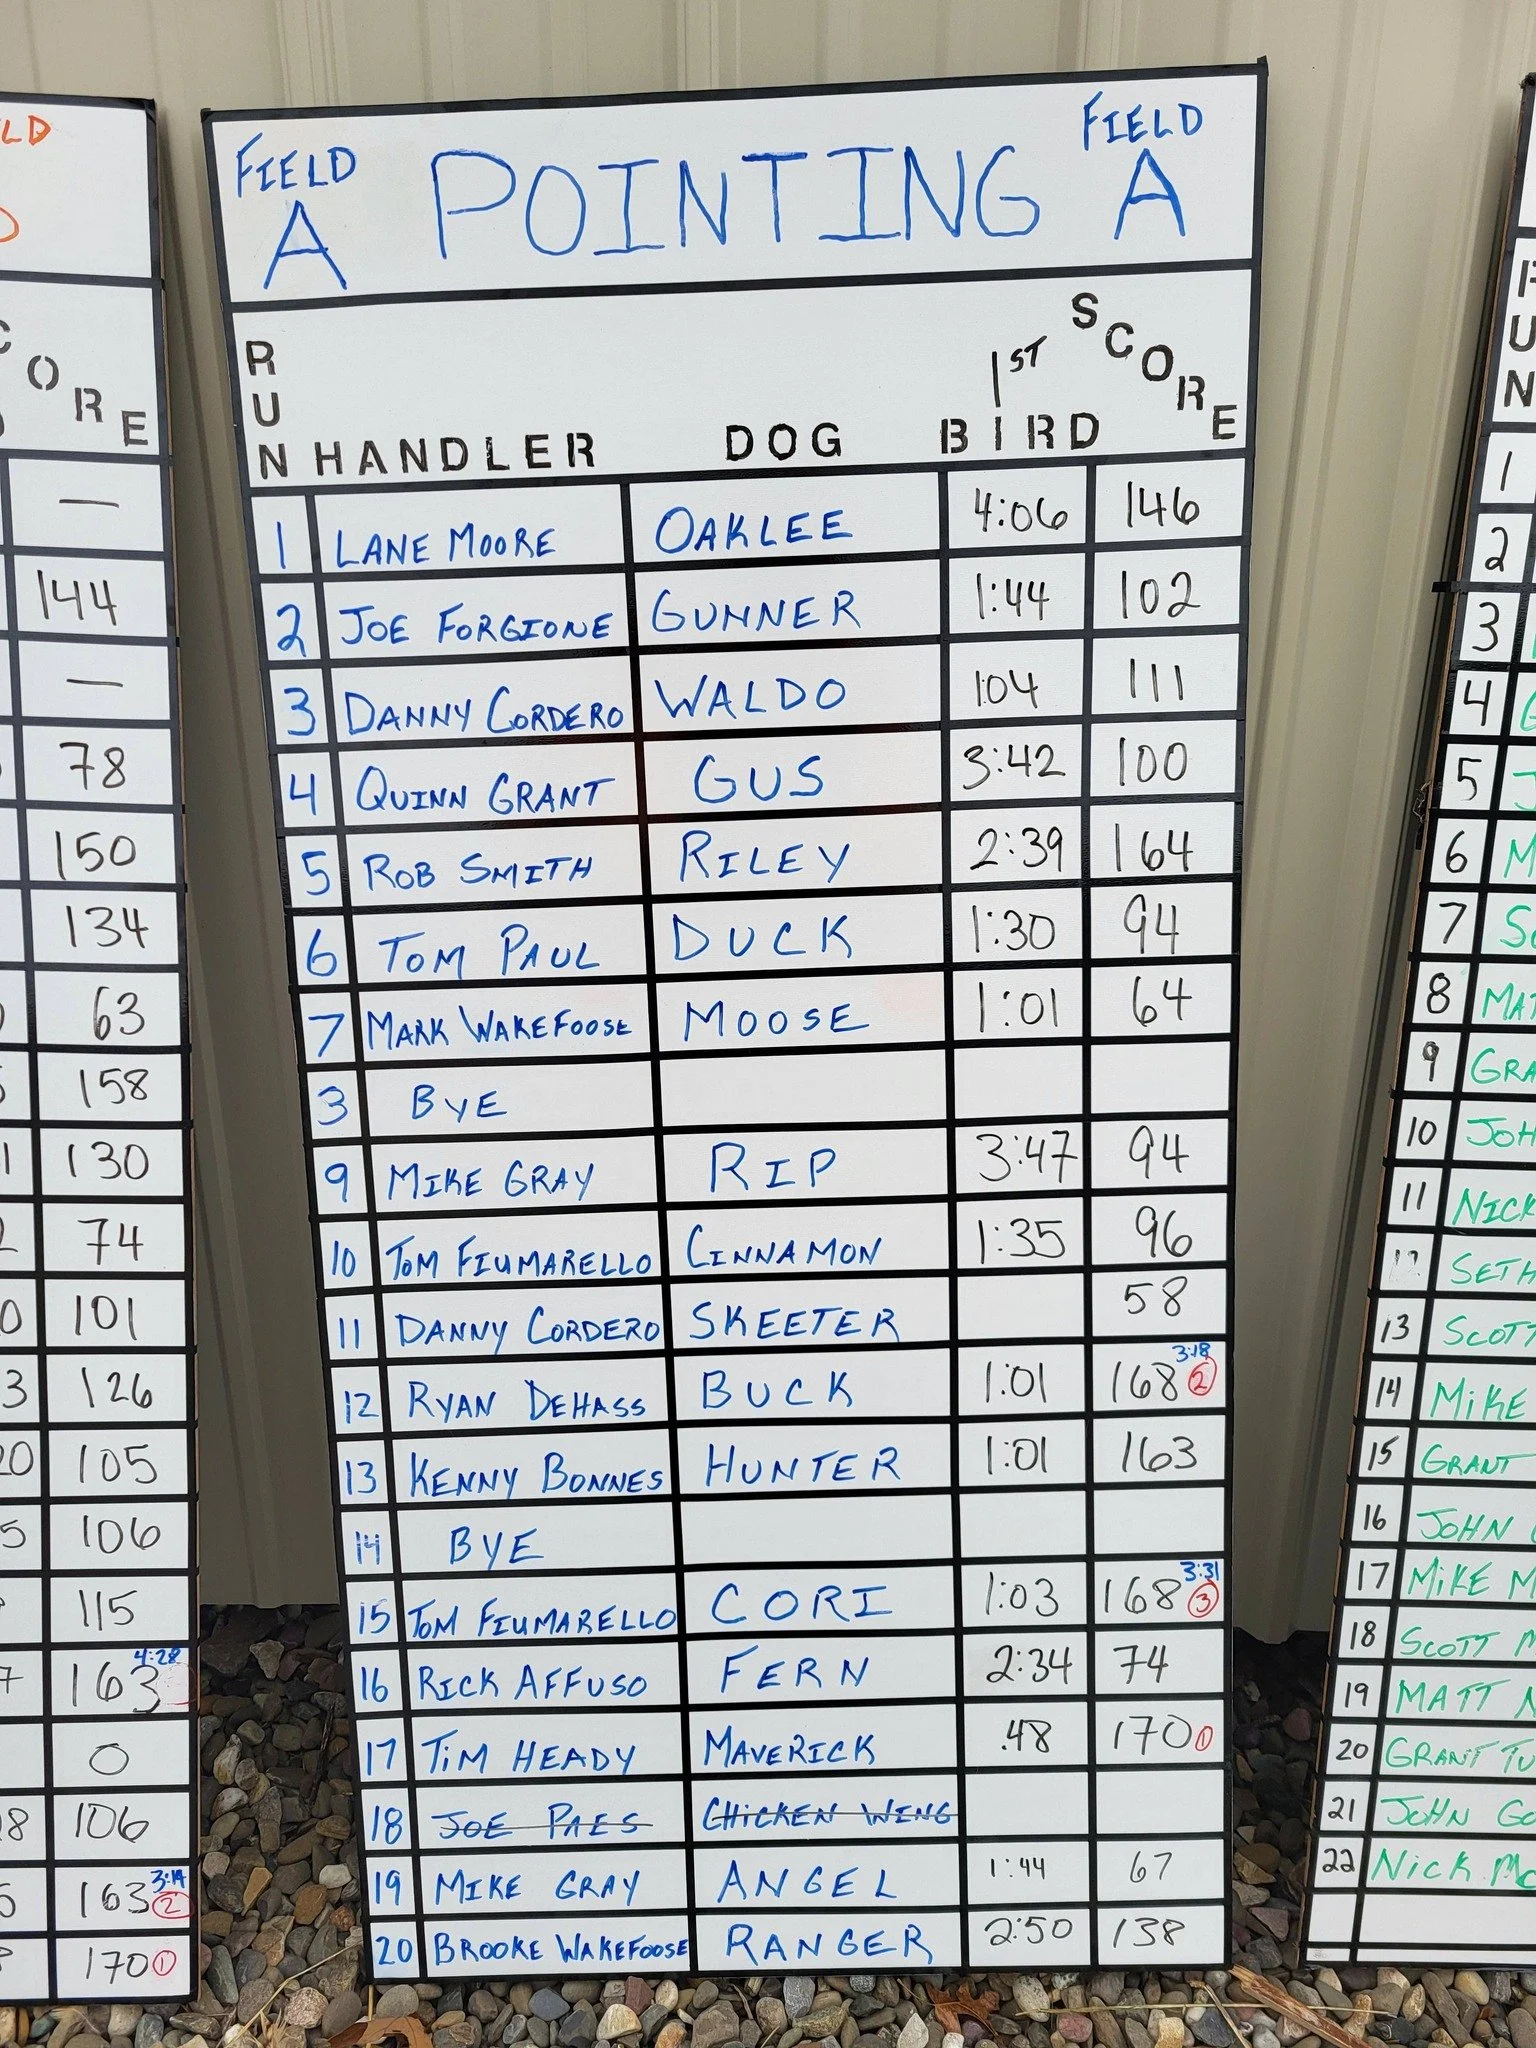 LD
CORE
—
144
—
78
150
134
63
158
130
74
101
126
105
106
115
163 4:28
0
106
163 3:14 2
170 1
FIELD A POINTING FIELD A
RUN HANDLER DOG 1ST BIRD SCORE
1 LANE MOORE OAKLEE 4:06 146
2 JOE FORGIONE GUNNER 1:44 102
3 DANNY CORDERO WALDO 1:04 111
4 QUINN GRANT GUS 3:42 100
5 ROB SMITH RILEY 2:39 164
6 TOM PAUL DUCK 1:30 94
7 MARK WAKEFOOSE MOOSE 1:01 64
3 BYE
9 MIKE GRAY RIP 3:47 94
10 TOM FIUMARELLO CINNAMON 1:35 96
11 DANNY CORDERO SKEETER 58
12 RYAN DEHASS BUCK 1:01 168 3:18 2
13 KENNY BONNES HUNTER 1:01 163
14 BYE
15 TOM FIUMARELLO CORI 1:03 168 3:31 3
16 RICK AFFUSO FERN 2:34 74
17 TIM HEADY MAVERICK .48 170 1
18 JOE PAES CHICKEN WING
19 MIKE GRAY ANGEL 1:44 67
20 BROOKE WAKEFOOSE RANGER 2:50 138
RUN
1
2
3
4
5
6
7
8
9 GRA
10 JOH
11 NICK
12 SETH
13 SCOTT
14 MIKE
15 GRANT
16 JOHN
17 MIKE M
18 SCOTT M
19 MATT N
20 GRANT TU
21 JOHN GO
22 NICK MC